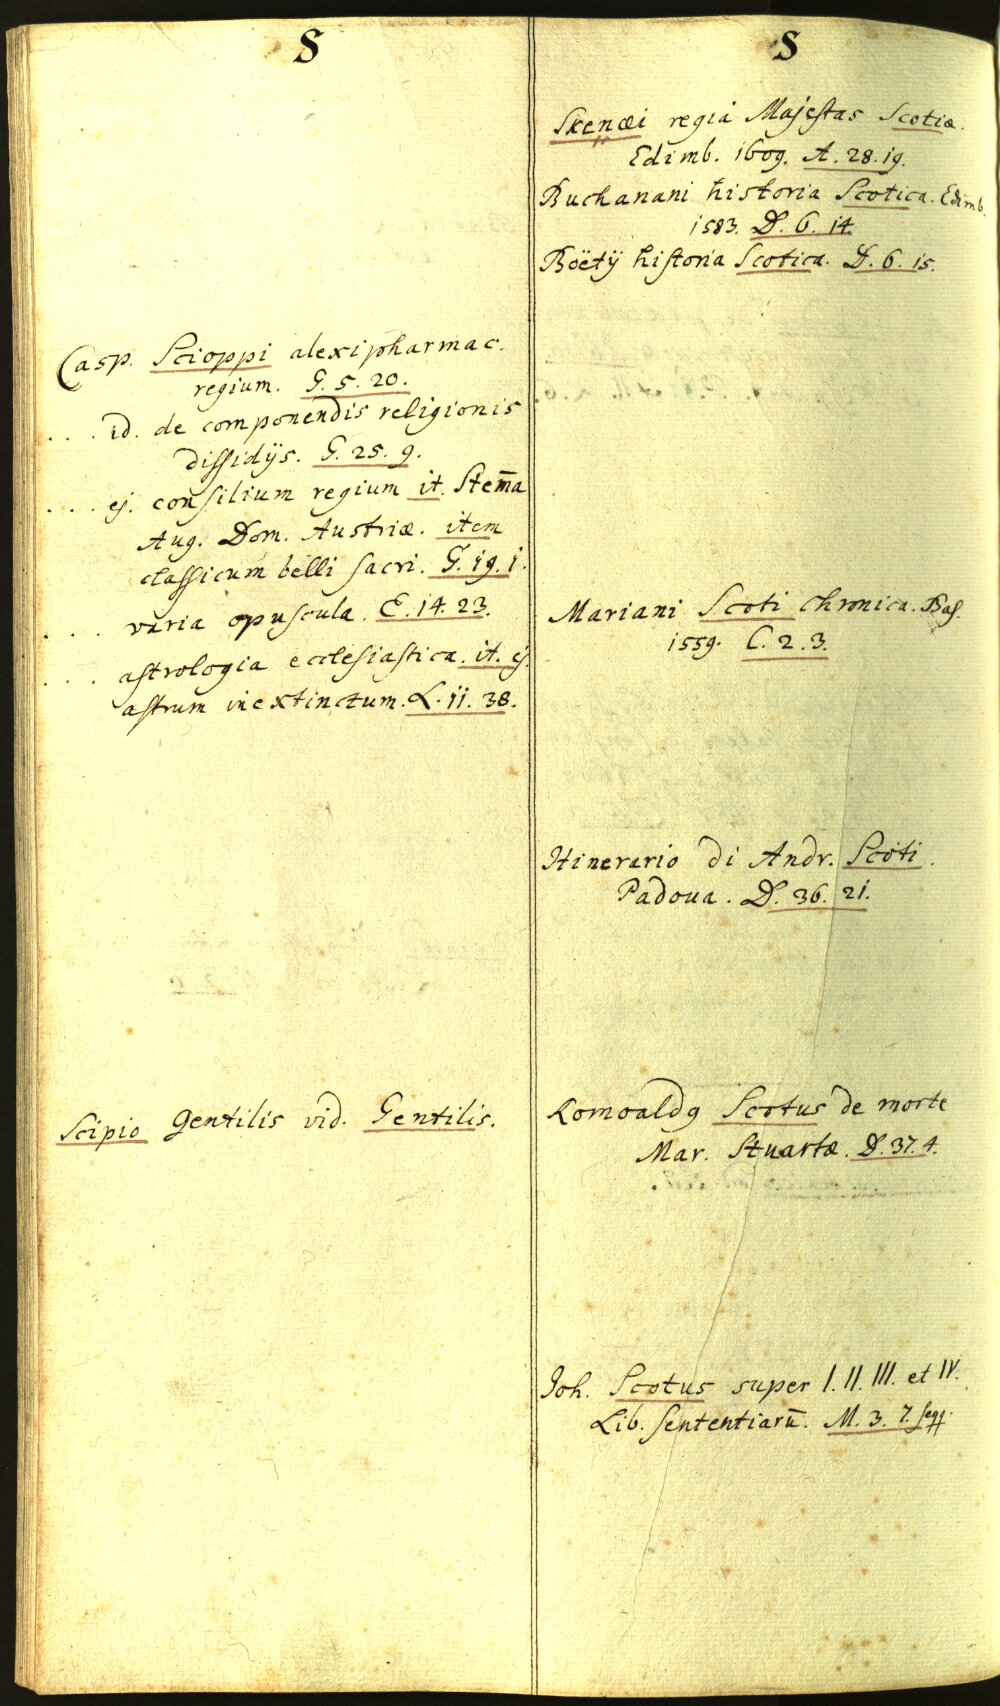 S
Casp. Scioppi alexipharmac.
regium. G. 5. 20.
. . . . id. de componendis religionis
dissidijs. G. 25. 9.
. . . . ej. consilium regium it. Stem̄a
Aug. Dom. Austriæ. item
classicum belli sacri. G. 19. 1.
. . . . varia opuscula. E. 14. 23.
. . . . astrologia ecclesiastica. it. ej.
astrum inextinctum. L. 11. 38.
Scipio Gentilis vid. Gentilis.
S
Skenæi regia Majestas Scotiæ.
Edimb. 1609. A. 28. 19.
Buchanani historia Scotica. Edimb.
1583. D. 6. 14.
Boëtij historia Scotica. D. 6. 15.
Mariani Scoti chronica. Bas.
1559. C. 2. 3.
Itinerario di Andr. Scoti.
Padoua. D. 36. 21.
Romoaldꝯ Scotus de morte
Mar. Stuartæ. D. 37. 4.
Joh. Scotus super I. II. III. et IV.
Lib. sententiarū. M. 3. 7. seqq.